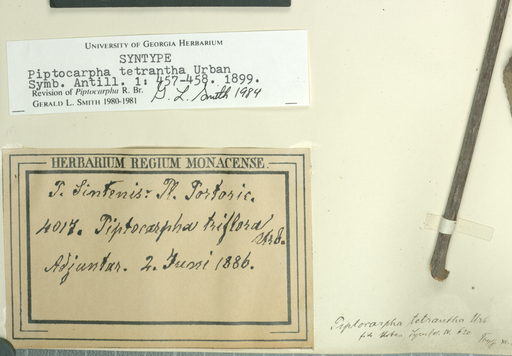 UNIVERSITY OF GEORGIA HERBARIUM
SYNTYPE
Piptocarpha tetrantha Urban
Symb. Antill. 1: 457-458. 1899.
Revision of Piptocarpha R. Br.
GERALD L. SMITH 1980-1981
G. L. Smith 1984
HERBARIUM REGIUM MONACENSE.
P. Sintenis: Pl. Portoric.
4017. Piptocarpha triflora
Urb.
Adjuntas. 2. Juni 1886.
Piptocarpha tetrantha Urb
fide Urban